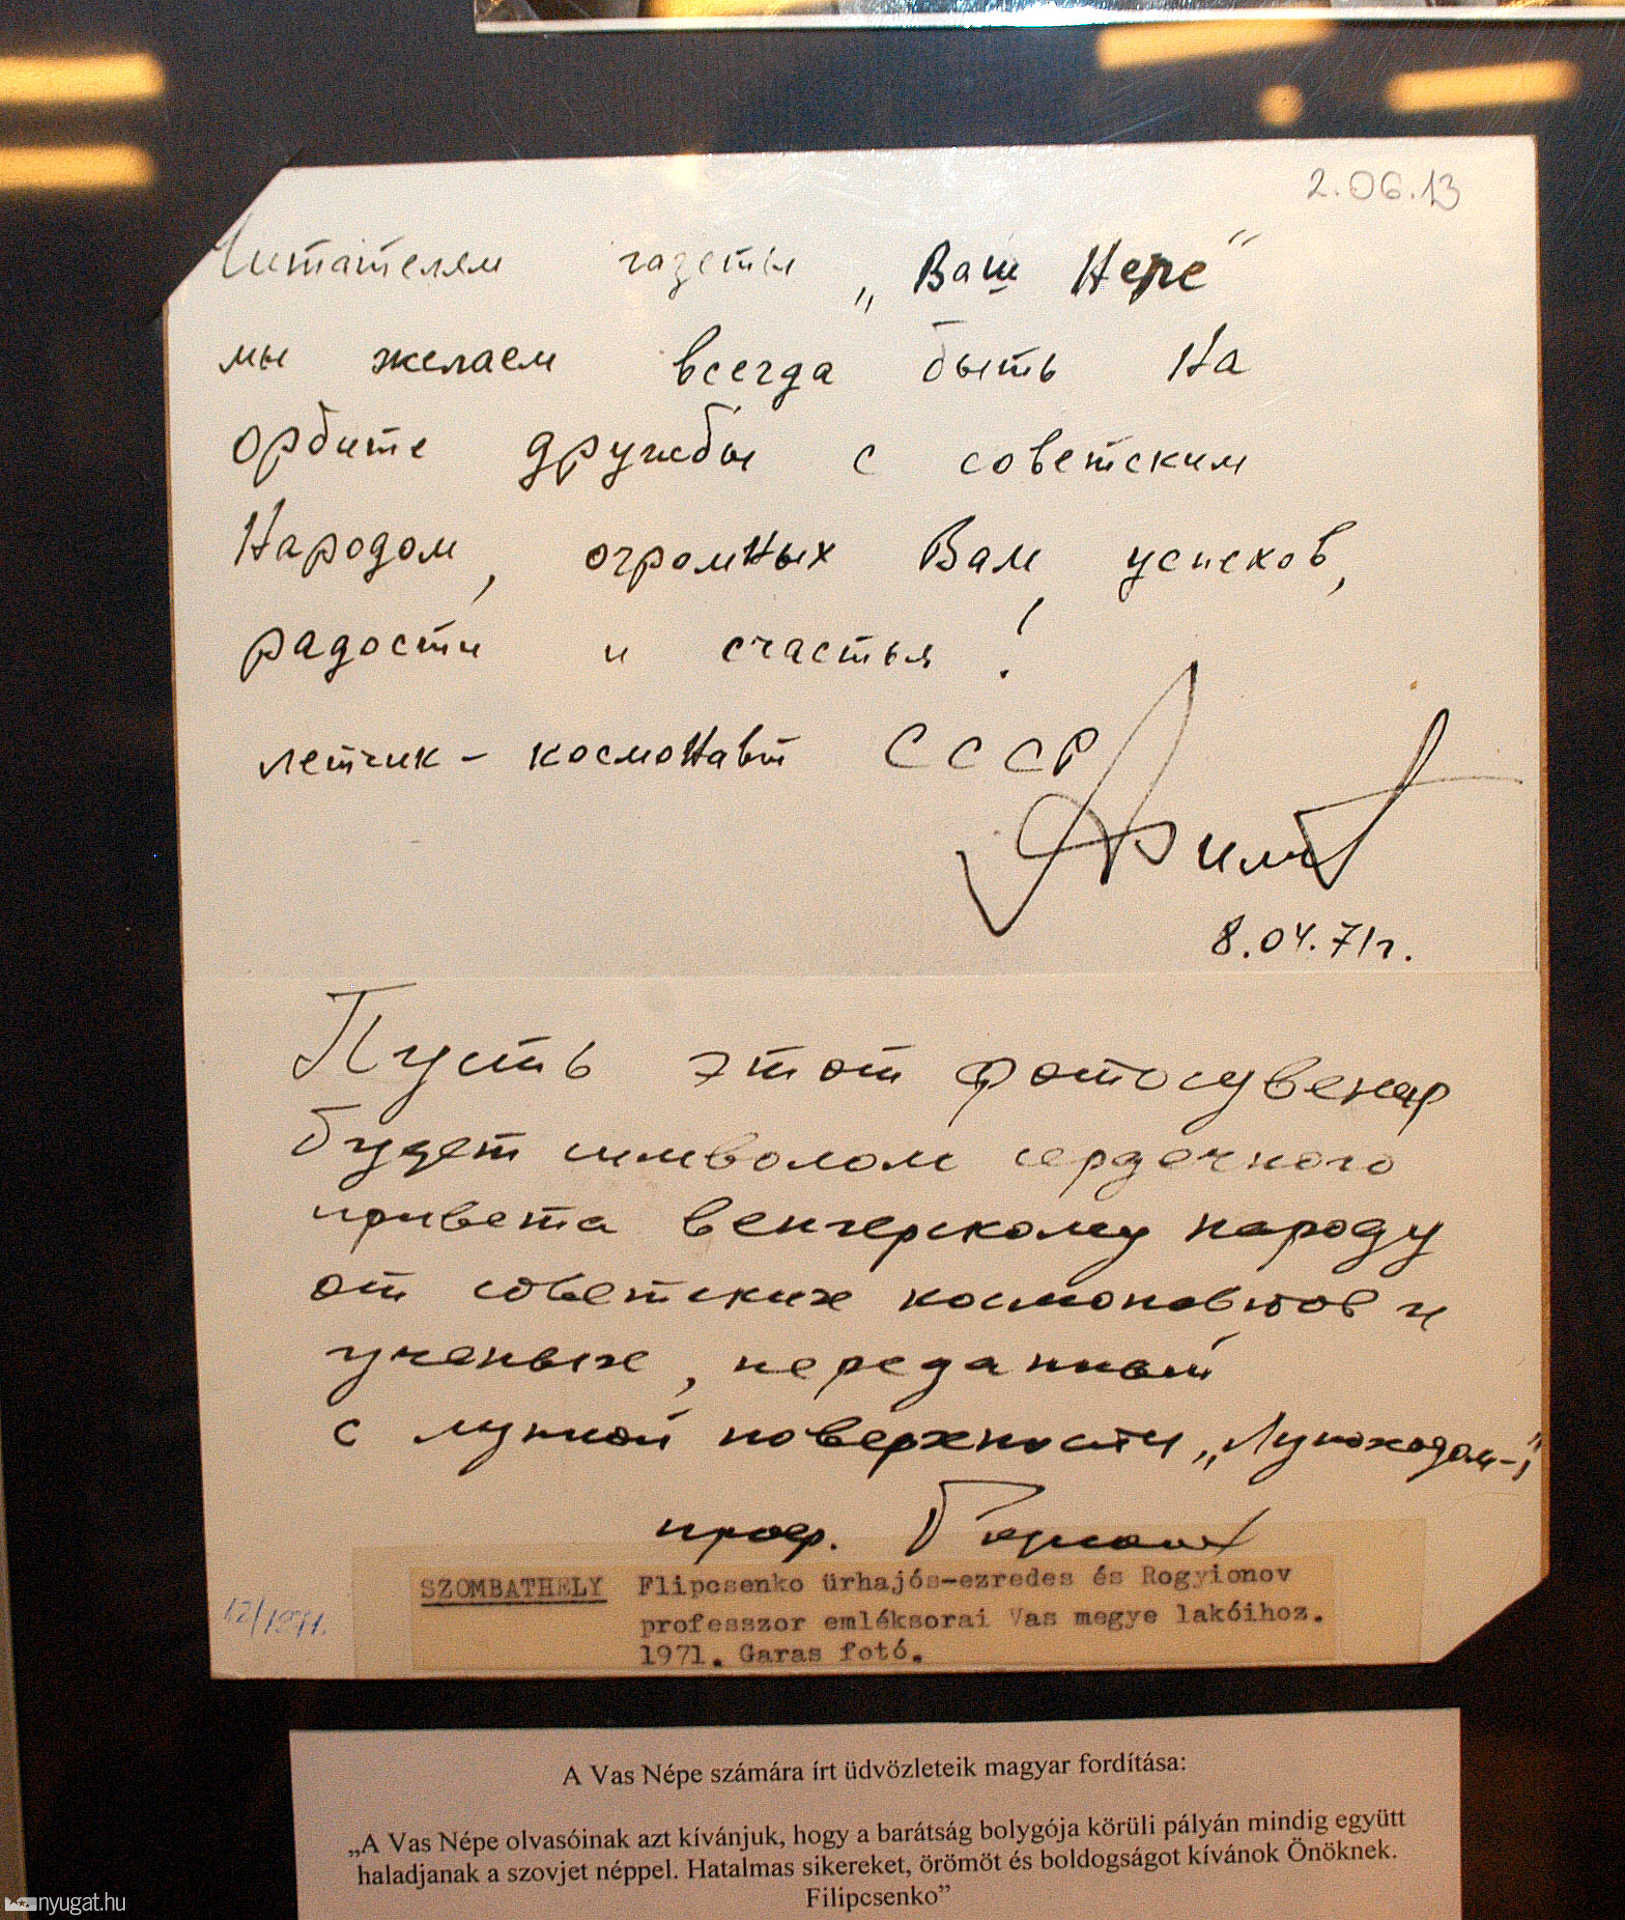 2.06.13
Читателям газеты „Ваш Непе“
мы желаем всегда быть на
орбите дружбы с советским
народом, огромных Вам успехов,
радости и счастья!
летчик - космонавт СССР
8.04.71г.
Пусть этот фотосувенир
будет символом сердечного
привета венгерскому народу
от советских космонавтов и
ученых, переданный
с лунной поверхности „Луноходом-1“
проф.
SZOMBATHELY Flipcsenko űrhajós-ezredes és Rogyionov
professzor emléksorai Vas megye lakóihoz.
1971. Garas fotó.
12/1971.
A Vas Népe számára írt üdvözleteik magyar fordítása:
„A Vas Népe olvasóinak azt kívánjuk, hogy a barátság bolygója körüli pályán mindig együtt
haladjanak a szovjet néppel. Hatalmas sikereket, örömöt és boldogságot kívánok Önöknek.
Filipcsenko”
nyugat.hu